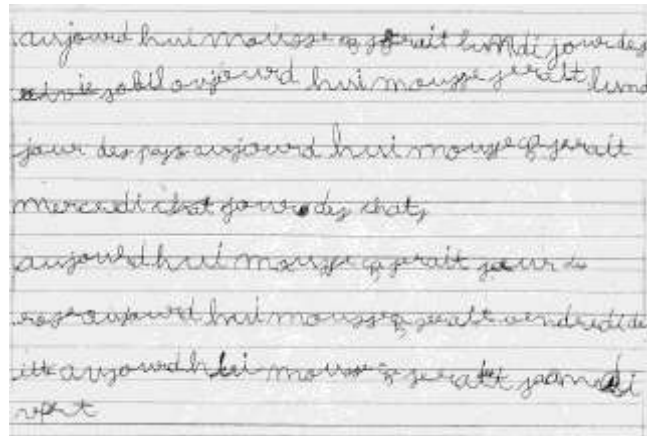 aujourd hui mousse ça serait lundi jour des
aujourd hui mousse serait lund
jour des pays aujourd hui mousse ça serait
mercredi chat jour des chats
aujourd hui mousse ça serait jour de
rose aujourd hui mousse ça serait vendredi de
aujourd hui mousse ça serait samedi
vert